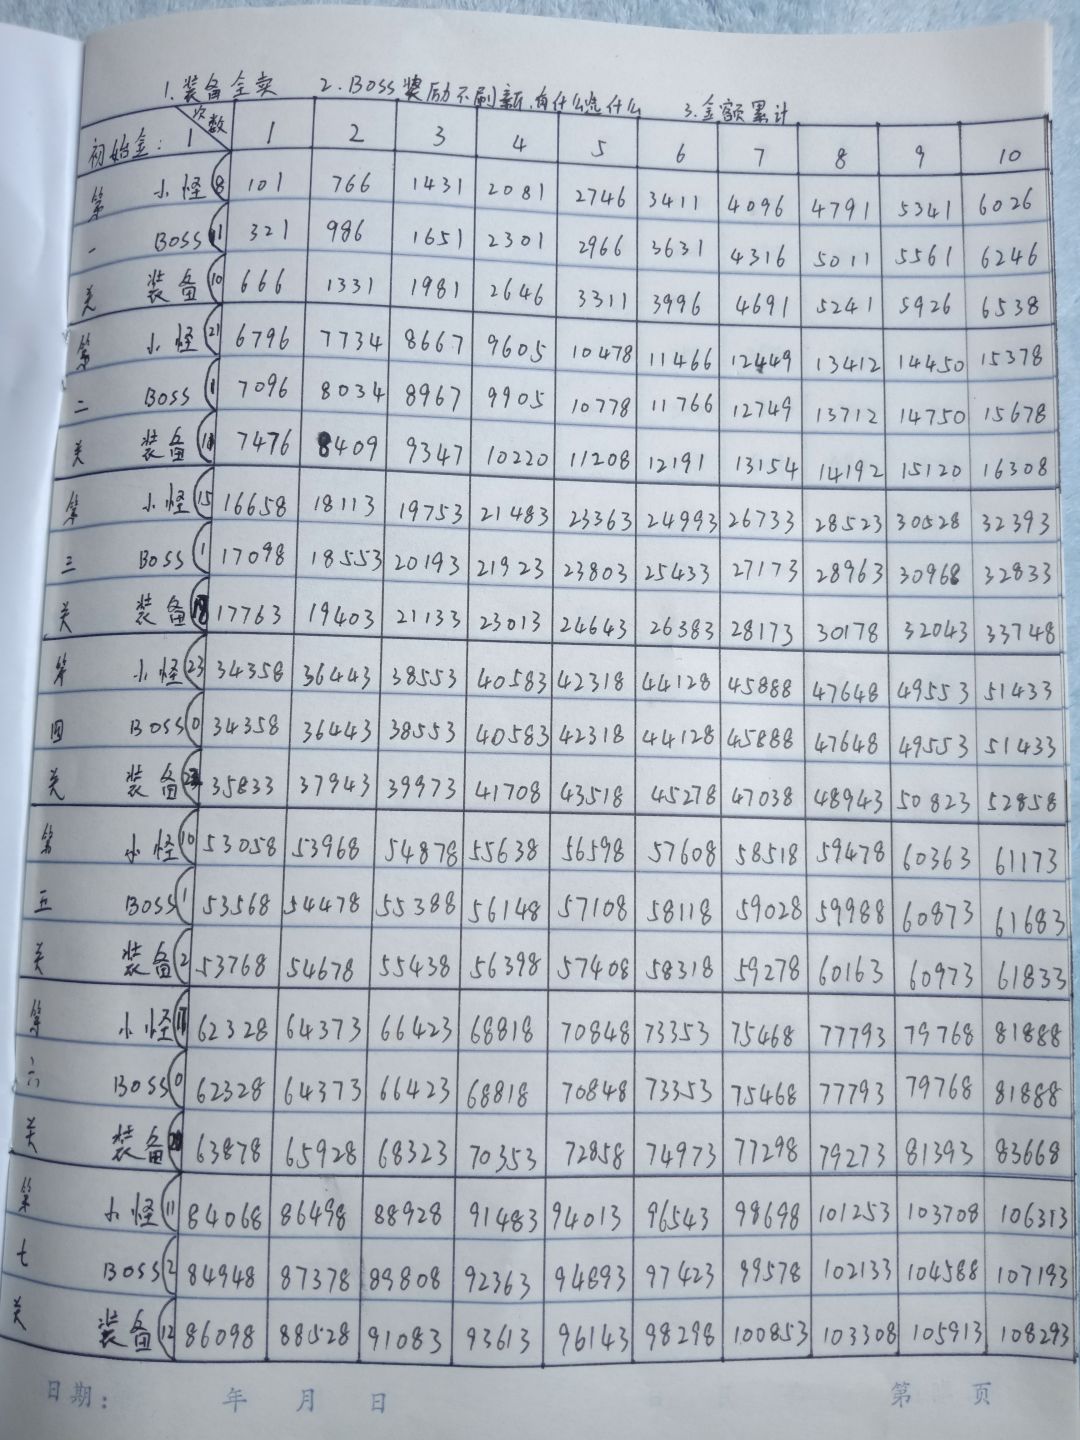 1.装备全卖 2.BOSS奖励不刷新,有什么选什么 3.金额累计
初始金:1 次数 1 2 3 4 5 6 7 8 9 10
第 小怪 8 101 766 1431 2081 2746 3411 4096 4791 5341 6026
一 BOSS 1 321 986 1651 2301 2966 3631 4316 5011 5561 6246
关 装备 10 666 1331 1981 2646 3311 3996 4691 5241 5926 6538
第 小怪 21 6796 7734 8667 9605 10478 11466 12449 13412 14450 15378
二 BOSS 1 7096 8034 8967 9905 10778 11766 12749 13712 14750 15678
关 装备 7476 8409 9347 10220 11208 12191 13154 14192 15120 16308
第 小怪 15 16658 18113 19753 21483 23363 24993 26733 28523 30528 32393
三 BOSS 1 17098 18553 20193 21923 23803 25433 27173 28963 30968 32833
关 装备 18 17763 19403 21133 23013 24643 26383 28173 30178 32043 33748
第 小怪 23 34358 36443 38553 40583 42318 44128 45888 47648 49553 51433
四 BOSS 0 34358 36443 38553 40583 42318 44128 45888 47648 49553 51433
关 装备 35833 37943 39973 41708 43518 45278 47038 48943 50823 52858
第 小怪 10 53058 53968 54878 55638 56598 57608 58518 59478 60363 61173
五 BOSS 1 53568 54478 55388 56148 57108 58118 59028 59988 60873 61683
关 装备 2 53768 54678 55438 56398 57408 58318 59278 60163 60973 61833
第 小怪 62328 64373 66423 68818 70848 73353 75468 77793 79768 81888
六 BOSS 0 62328 64373 66423 68818 70848 73353 75468 77793 79768 81888
关 装备 63878 65928 68323 70353 72858 74973 77298 79273 81393 83668
第 小怪 11 84068 86498 88928 91483 94013 96543 98698 101253 103708 106313
七 BOSS 2 84948 87378 89808 92363 94893 97423 99578 102133 104588 107193
关 装备 12 86098 88528 91083 93613 96143 98298 100853 103308 105913 108293
日期: 年 月 日 第 页